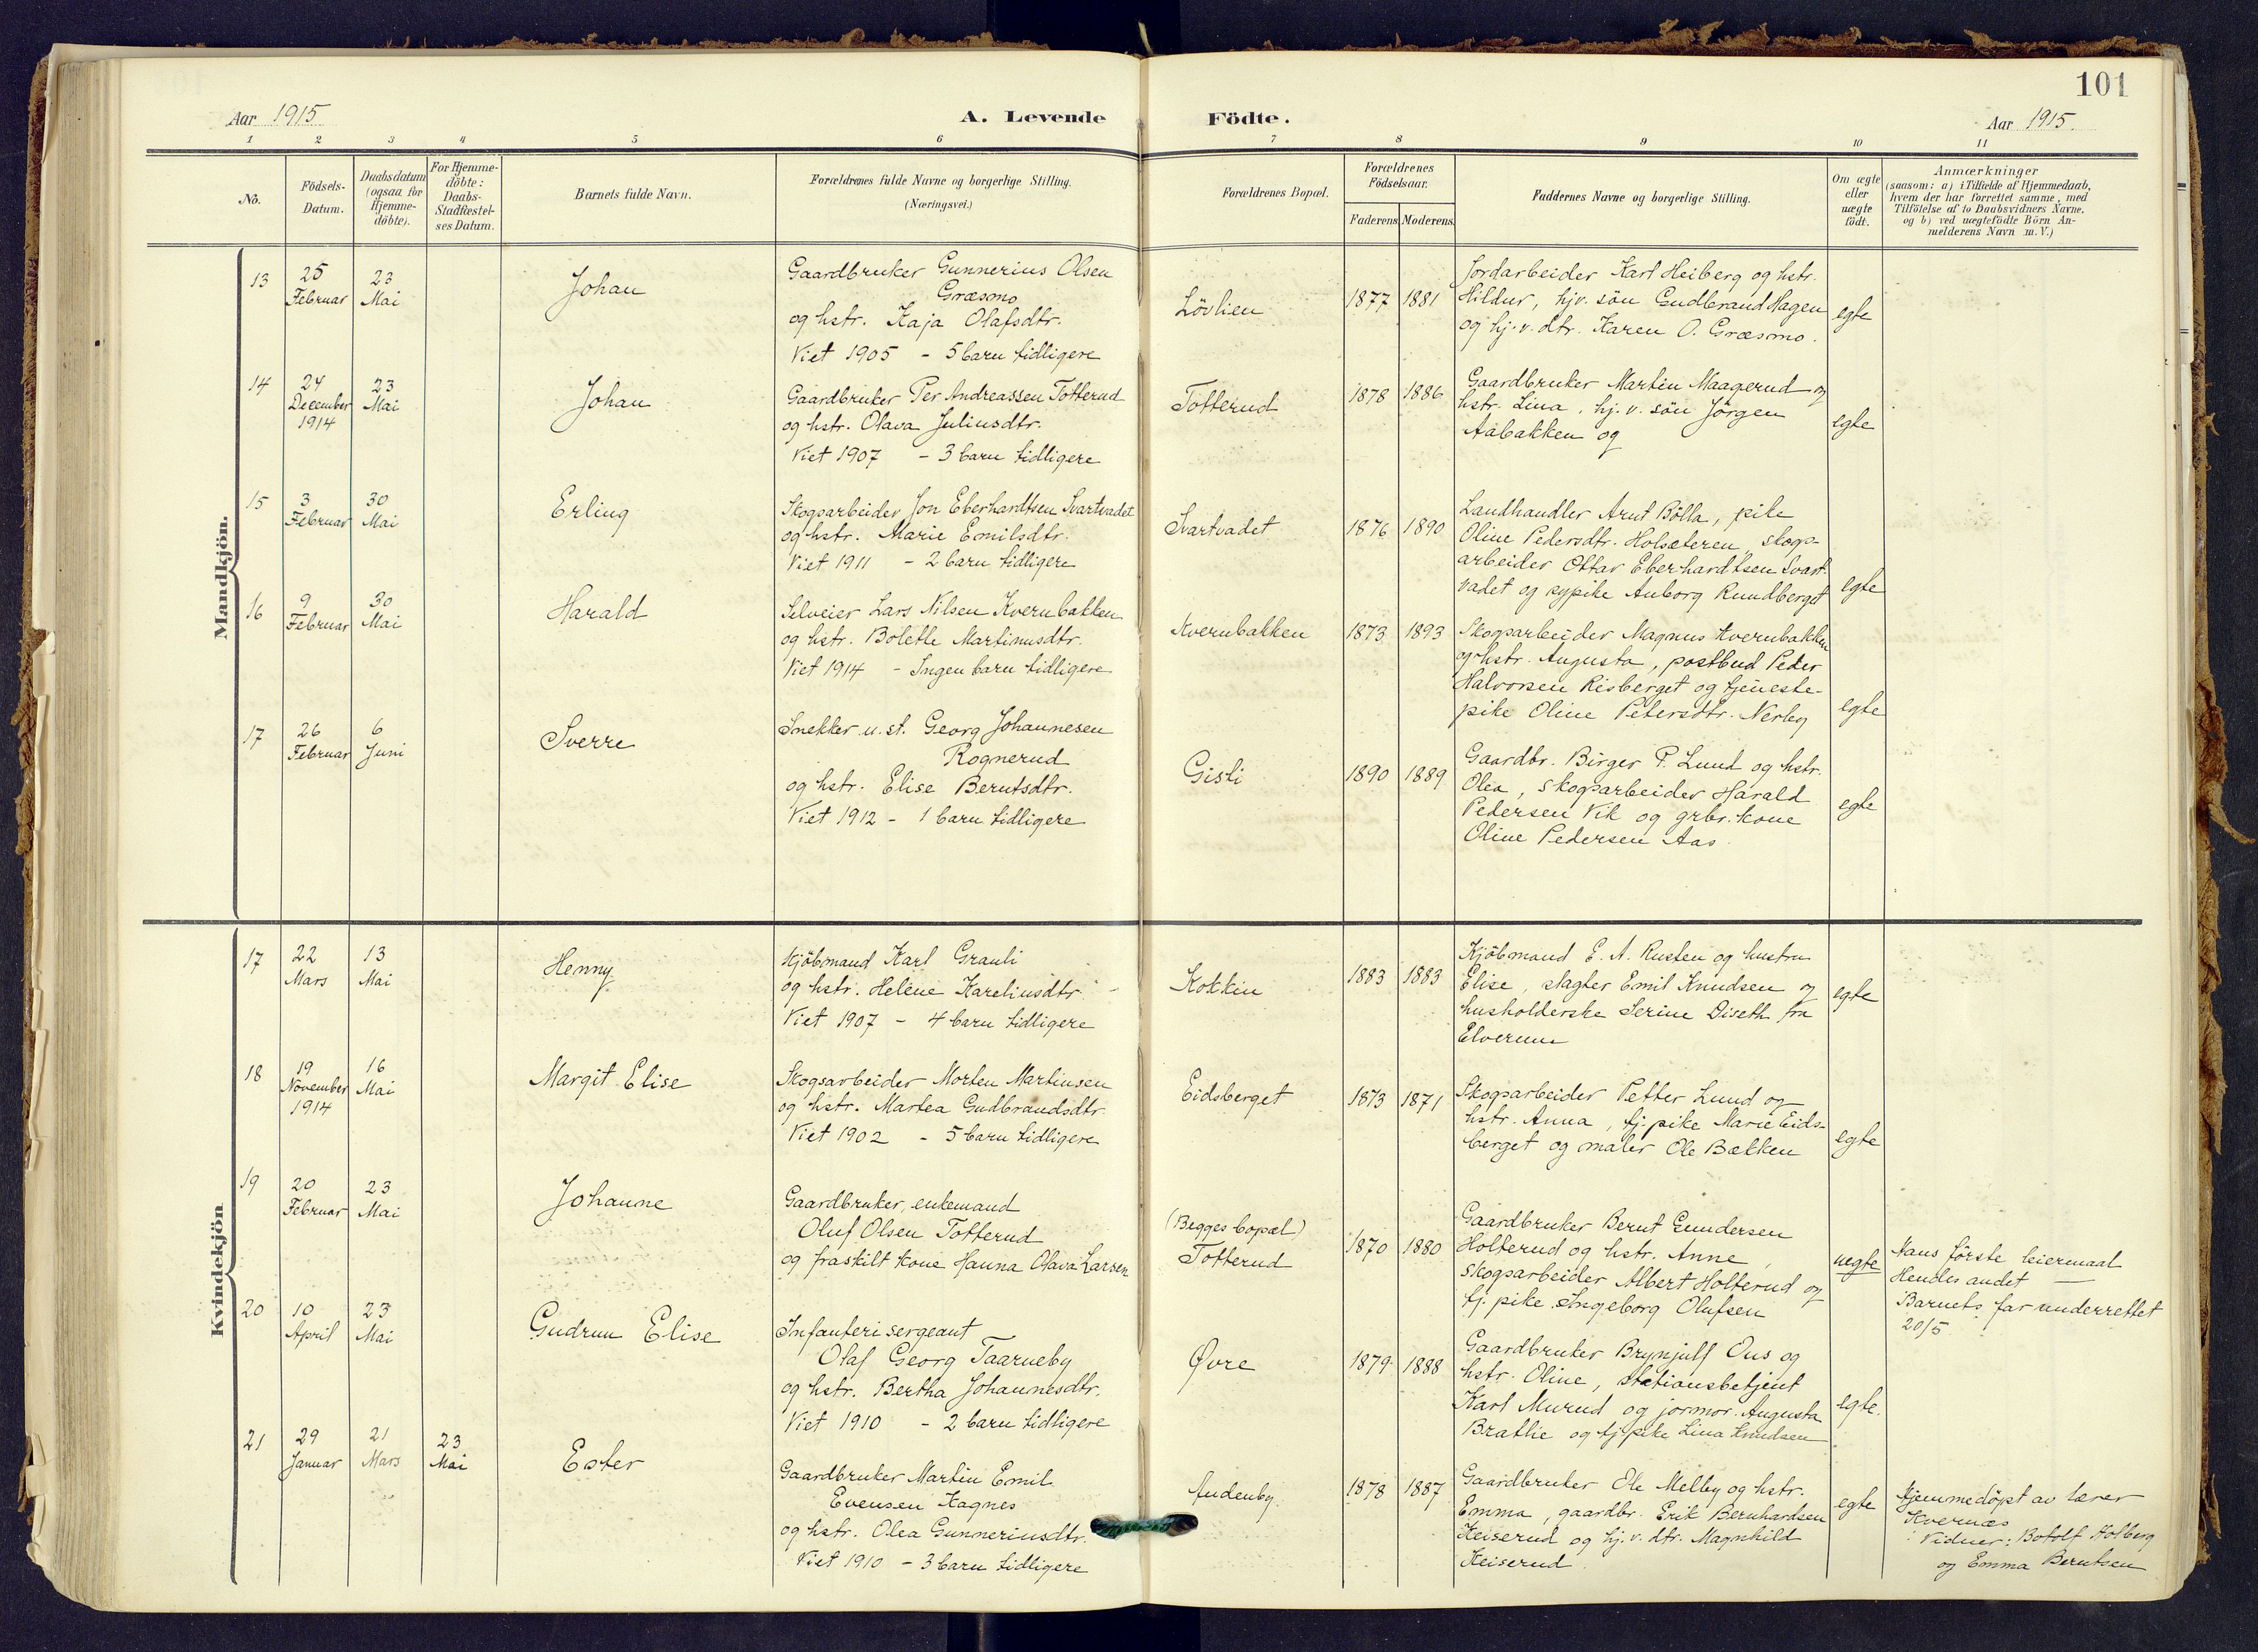 101
Aar 1915
A. Levende Födte.
Aar 1915.
1 2 3 4 5 6 7 8 9 10 11
No.
Födsels-
Datum.
Daabsdatum
(ogsaa for
Hjemme-
döbte).
For Hjemme-
döbte:
Daabs-
Stadfæstel-
ses Datum.
Barnets fulde Navn.
Forældrenes fulde Navne og borgerlige Stilling.
(Næringsvei.)
Forældrenes Bopæl.
Forældrenes
Födselsaar.
Faderens Moderens
Faddernes Navne og borgerlige Stilling.
Om ægte
eller
uægte
födt.
Anmærkninger
(saasom: a) i Tilfælde af Hjemmedaab,
hvem der har forrettet samme, med
Tilföielse af to Daabsvidners Navne.
og b) ved uægtefödte Börn An-
melderens Navn m. V.)
Mandkjön.
13
25
Februar
23
Mai
Johan
Gaardbruker Gunnerius Olsen
Græsmo
og hstr. Kaja Olafsdtr.
Viet 1905 - 5 barn tidligere
Lövlien
1877 1881
Jordarbeider Karl Heiberg og hstr.
Hildur, hjv. sön Gudbrand Hagen
og hj. v. dtr. Karen O. Græsmo.
egte
14
24
December
1914
23
Mai
Johan
Gaardbruker Per Andreassen Totterud
og hstr. Olava Juliusdtr.
Viet 1907 - 3 barn tidligere
Totterud
1878 1886
Gaardbruker Martin Maagerud og
hstr. Lina, hj. v. sön Jörgen
Aabakken og
egte
15
3
Februar
30
Mai
Erling
Skogsarbeider Jon Eberhardtsen Svartvadet
og hstr. Marie Emilsdtr.
Viet 1911 - 2 barn tidligere
Svartvadet
1876 1890
Landhandler Arnt Bölla, pike
Oline Pedersdtr. Holsæteren, skogs-
arbeider Ottar Eberhardtsen Svart-
vadet og sypike Anborg Rundberget
egte
16
9
Februar
30
Mai
Harald
Selveier Lars Nilsen Kvernbakken
og hstr. Bolette Martinusdtr.
Viet 1914 - Ingen barn tidligere
Kvernbakken
1873 1893
Skogsarbeider Magnus Kvernbakken
og hstr. Augusta, postbud Peder
Halvorsen Risberget og tjeneste-
pike Oline Petersdtr. Nerby
egte
17
26
Februar
6
Juni
Sverre
Snekker u. st. Georg Johannesen
Rognerud
og hstr. Elise Berntsdtr.
Viet 1912 - 1 barn tidligere
Gisti
1890 1889
Gaardbr. Birger P. Lund og hstr.
Olea, skogsarbeider Harald
Pedersen Vik og grbr. kone
Oline Pedersen Aas
egte
Kvindekjön
17
22
Mars
13
Mai
Henny
Kjöbmand Karl Grauli
og hstr. Helene Kareliusdtr.
Viet 1907 - 4 barn tidligere
Kokkin
1883 1883
Kjöbmand E. A. Rusten og hustru
Elise, slagter Emil Knudsen og
husholderske Serine Diseth fra
Elverum
egte
18
19
November
1914
16
Mai
Margit Elise
Skogsarbeider Morten Martinsen
og hstr. Martea Gudbrandsdtr.
Viet 1902 - 5 barn tidligere
Eidsberget
1873 1871
Skogsarbeider Petter Lund og
hstr. Anna, tj. pike Marie Eids-
berget og maler Ole Bakken
egte
19
20
Februar
23
Mai
Johanne
Gaardbruker, enkemand
Oluf Olsen Totterud
og fraskilt kone Hanna Olava Larsen
(Begges bopæl)
Totterud
1870 1880
Gaardbruker Bernt Gundersen
Holterud og hstr. Anne,
skogsarbeider Albert Holterud og
tj. pike Ingeborg Olufsen
uegte
Hans förste leiermaal
Hendes andet —
Barnets far underrettet
20/5
20
10
April
23
Mai
Gudrun Elise
Infanterisergeant
Olaf Georg Taarneby
og hstr. Bertha Johannesdtr.
Viet 1910 - 2 barn tidligere
Øvre
1879 1888
Gaardbruker Brynjulf Ous og
hstr. Oline, stationsbetjent
Karl Murud og jormor Augusta
Bratlie og tj pike Lina Knudsen
egte.
21
29
Januar
21
Mars
23
Mai
Ester
Gaardbruker Martin Emil
Evensen Kagnes
og hstr. Olea Gunneriusdtr.
Viet 1910 - 3 barn tidligere
Audenby
1878 1887
Gaardbruker Ole Melby og hstr.
Emma, gaardbr. Erik Bernhardsen
Keiserud og hj. v. dtr. Magnhild
Keiserud
egte
Hjemmedöpt av lærer
Kvernæs
Vidner: Botolf Holberg
og Emma Berntsen